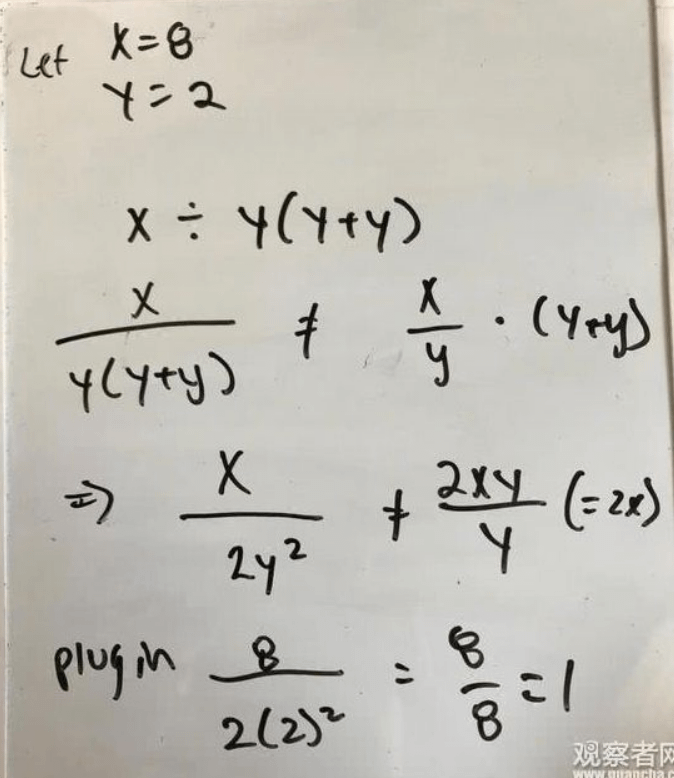 Let x=8
y=2
x ÷ y(y+y)
x/y(y+y) ≠ x/y · (y+y)
⇒ x/2y² ≠ 2xy/y (=2x)
plug in 8/2(2)² = 8/8 = 1
观察者网